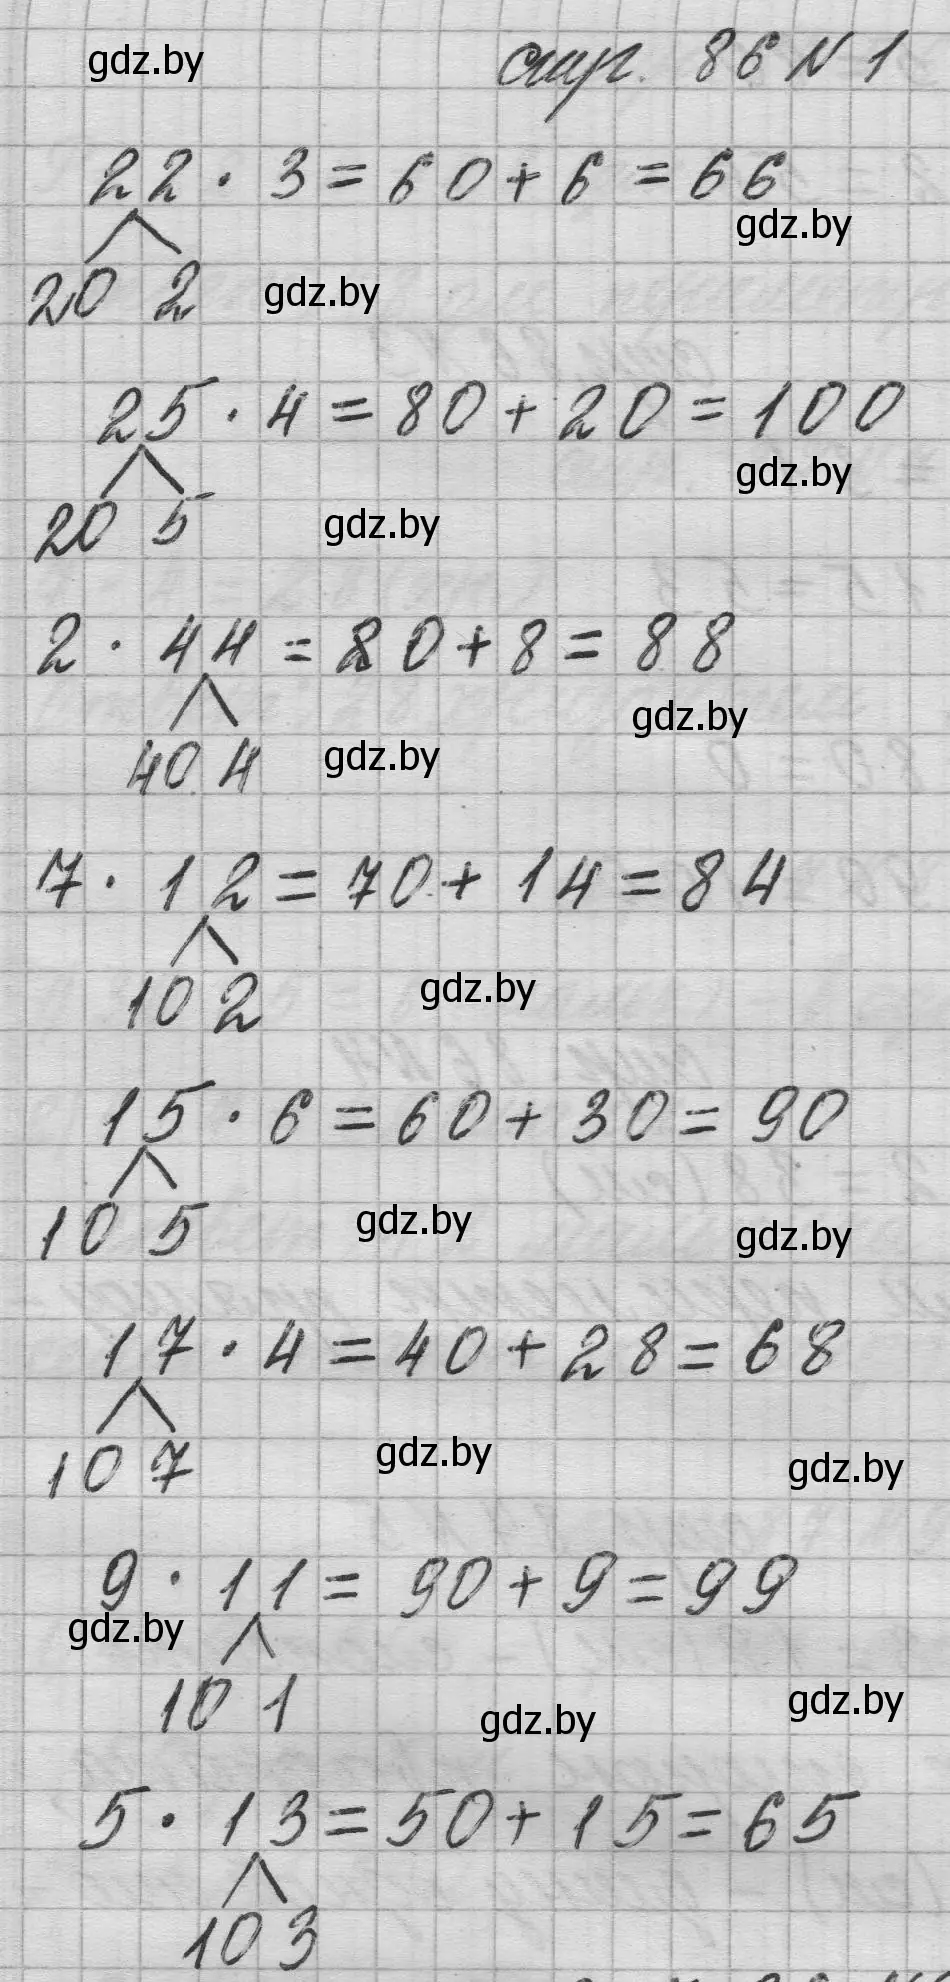 gdz.by
стр. 86 N 1
22 · 3 = 60 + 6 = 66
gdz.by
20 2 gdz.by
25 · 4 = 80 + 20 = 100
gdz.by
20 5 gdz.by
2 · 44 = 80 + 8 = 88
gdz.by
40 4 gdz.by
7 · 12 = 70 + 14 = 84
10 2 gdz.by
15 · 6 = 60 + 30 = 90
10 5 gdz.by gdz.by
17 · 4 = 40 + 28 = 68
10 7 gdz.by gdz.by
9 · 11 = 90 + 9 = 99
gdz.by
10 1 gdz.by gdz.by
5 · 13 = 50 + 15 = 65
10 3